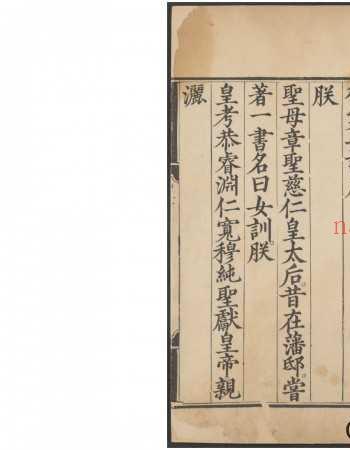 朕
聖母章聖慈仁皇太后昔在藩邸嘗
著一書名曰女訓朕
皇考恭睿淵仁寬穆純聖獻皇帝親
灑